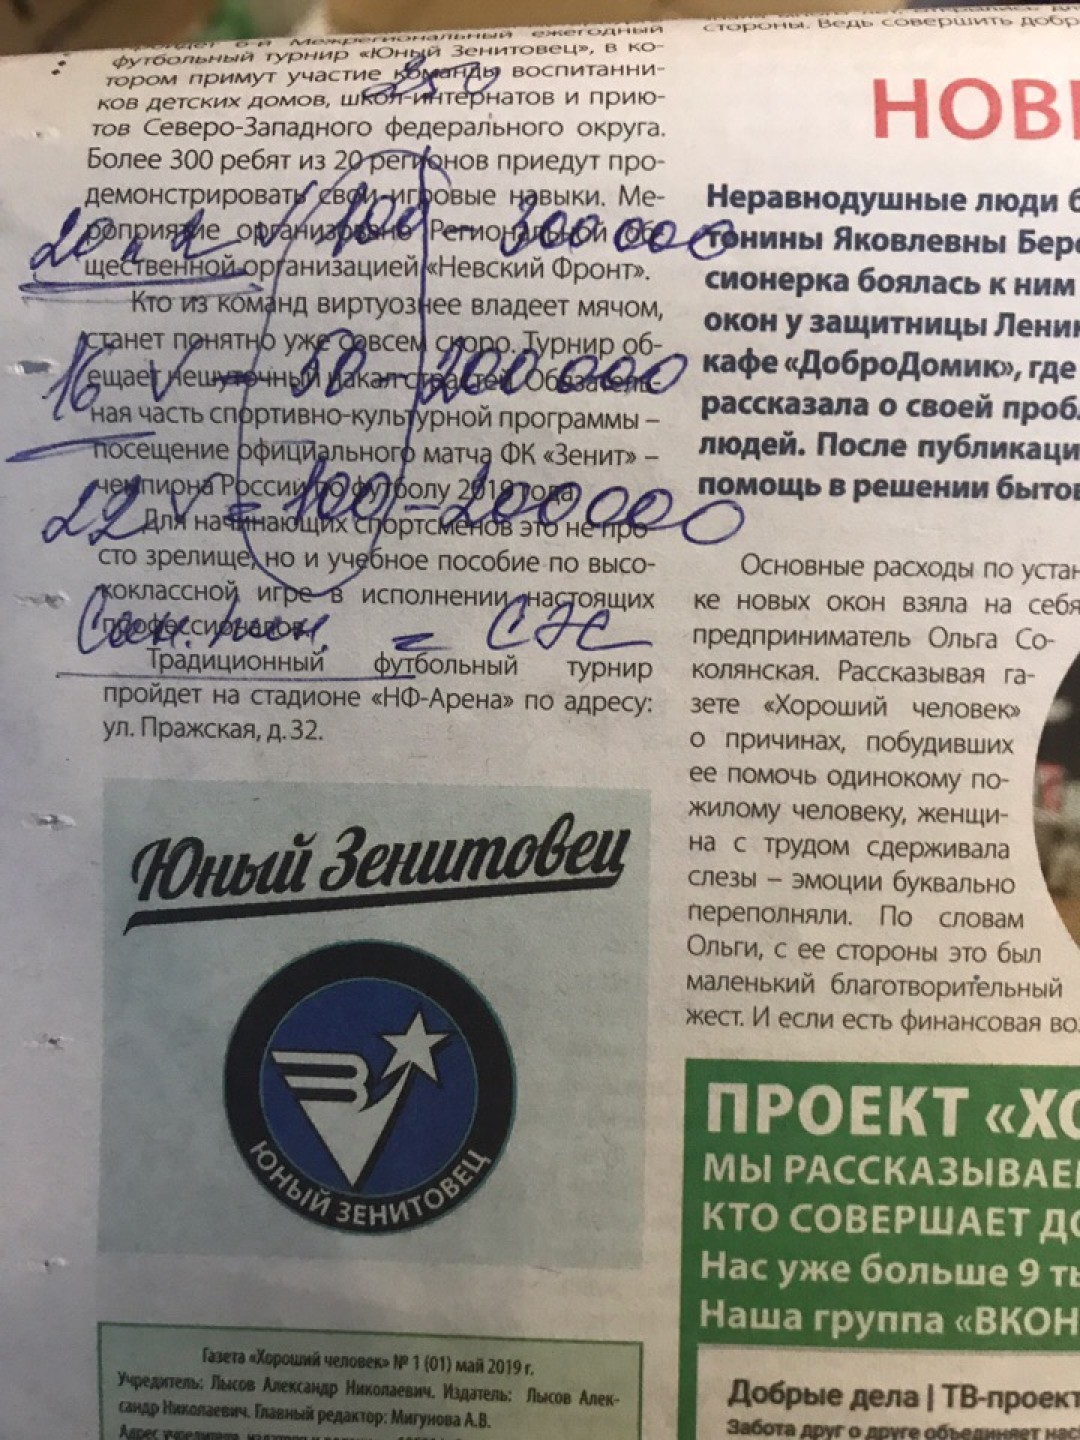 пройдет 6-й Межрегиональный ежегодный
футбольный турнир «Юный Зенитовец», в ко-
тором примут участие команды воспитанни-
250
ков детских домов, школ-интернатов и прию-
тов Северо-Западного федерального округа.
Более 300 ребят из 20 регионов приедут про-
демонстрировать свои игровые навыки. Ме-
роприятие организовано Региональной об-
100 - 300 000
щественной организацией «Невский Фронт».
Кто из команд виртуознее владеет мячом,
станет понятно уже совсем скоро. Турнир об-
ещает нешуточный накал страстей. Обязатель-
16 V - 50 - 200 000
ная часть спортивно-культурной программы –
посещение официального матча ФК «Зенит» –
чемпиона России по футболу 2019 года.
22 V = 100 - 200 000
Для начинающих спортсменов это не про-
сто зрелище, но и учебное пособие по высо-
коклассной игре в исполнении настоящих
профессионалов.
= СЭС
Традиционный футбольный турнир
пройдет на стадионе «НФ-Арена» по адресу:
ул. Пражская, д. 32.
Юный Зенитовец
ЮНЫЙ ЗЕНИТОВЕЦ
Газета «Хороший человек» № 1 (01) май 2019 г.
Учредитель: Лысов Александр Николаевич. Издатель: Лысов Алек-
сандр Николаевич. Главный редактор: Мигунова А.В.
стороны. Ведь совершить добр
НОВЫ
Неравнодушные люди б
тонины Яковлевны Бере
сионерка боялась к ним
окон у защитницы Ленин
кафе «ДоброДомик», где
рассказала о своей пробл
людей. После публикаци
помощь в решении бытов
Основные расходы по устан
ке новых окон взяла на себя
предприниматель Ольга Со-
колянская. Рассказывая га-
зете «Хороший человек»
о причинах, побудивших
ее помочь одинокому по-
жилому человеку, женщи-
на с трудом сдерживала
слезы – эмоции буквально
переполняли. По словам
Ольги, с ее стороны это был
маленький благотворительный
жест. И если есть финансовая воз
ПРОЕКТ «ХО
МЫ РАССКАЗЫВАЕМ
КТО СОВЕРШАЕТ ДО
Нас уже больше 9 ты
Наша группа «ВКОН
Добрые дела | ТВ-проект
Забота друг о друге объединяет нас